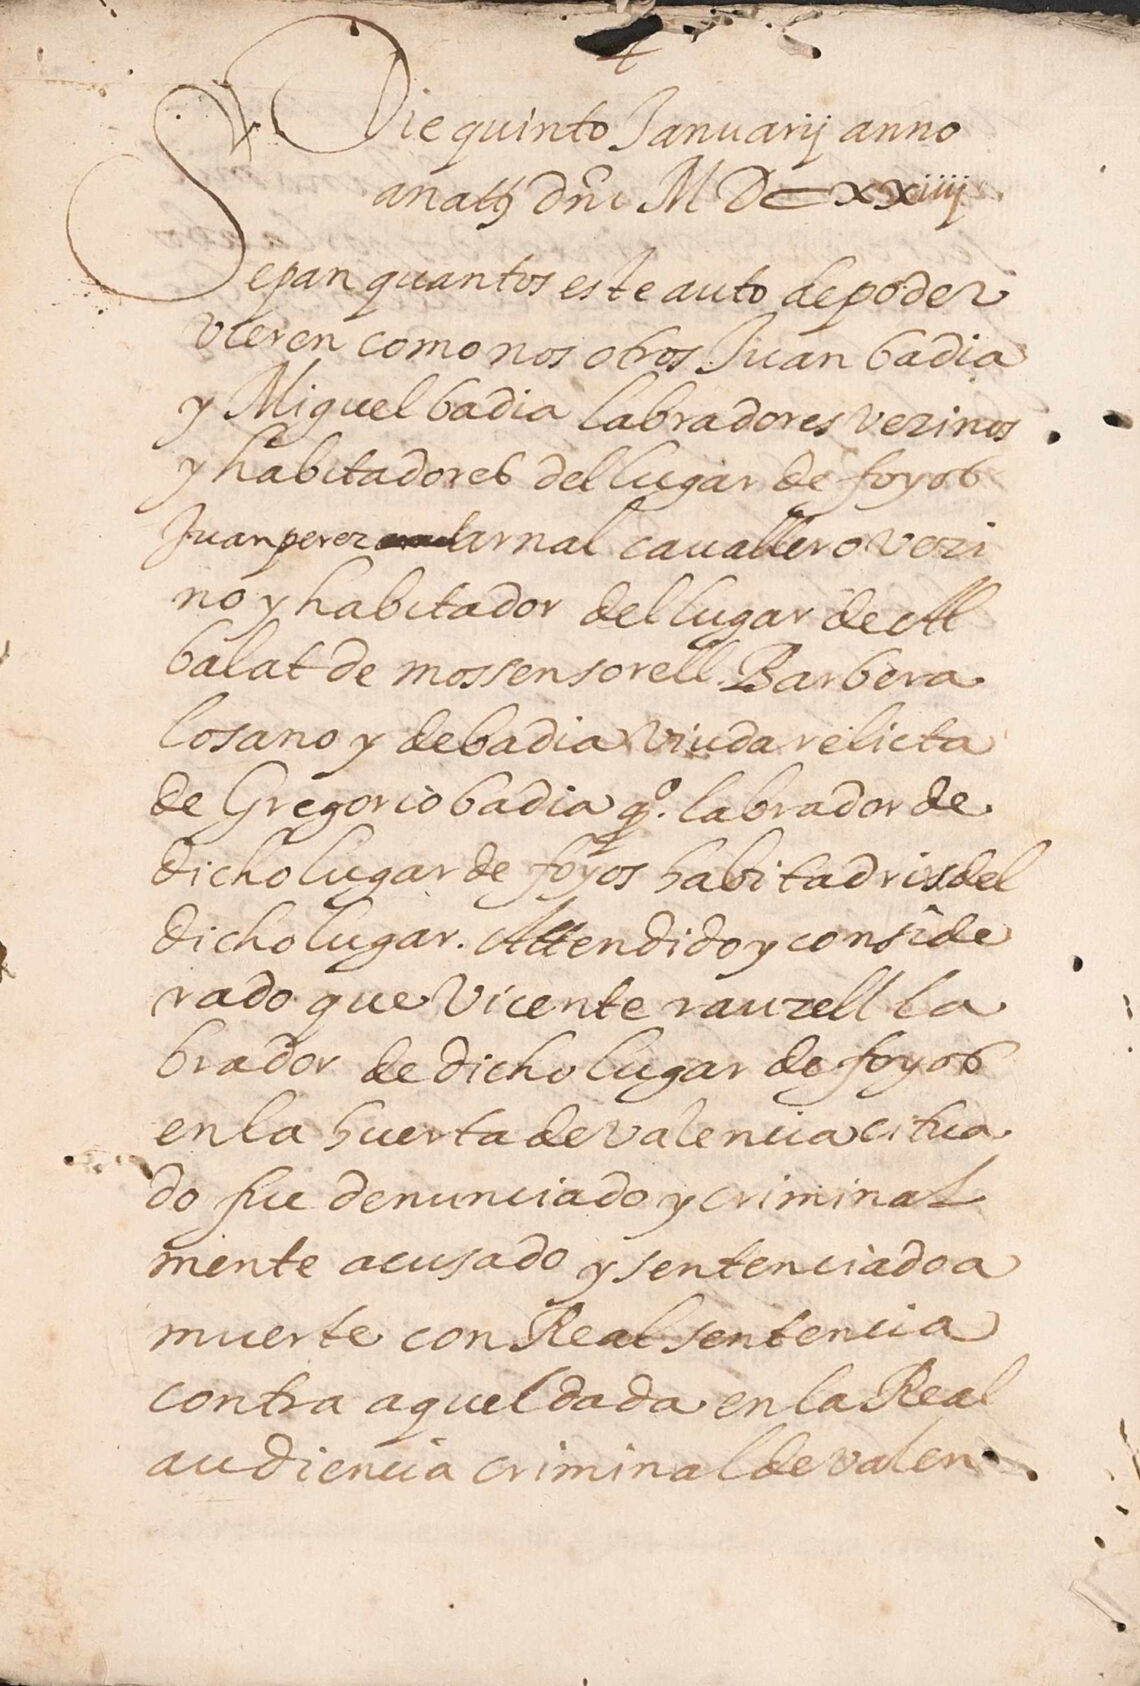 Die quinto Januarij anno
a natt dñi MDCxxiiij
Sepan quantos este auto de poder
vieren como nos otros Juan badia
y Miguel badia labradores vezinos
y habitadores del lugar de foyos
Juan perez arnal cauallero vezi
no y habitador del lugar de Al
balat de mossen sorell Barbera
losano y de badia viuda relicta
de Gregorio badia qº. labrador de
dicho lugar de foyos habitadris del
dicho lugar. Attendido y conside
rado que Vicente rauzell la
brador de dicho lugar de foyos
en la huerta de valencia citua
do fue denunciado y criminal
mente acusado y sentenciado a
muerte con Real sentencia
contra aquel dada en la Real
audiencia criminal de valen